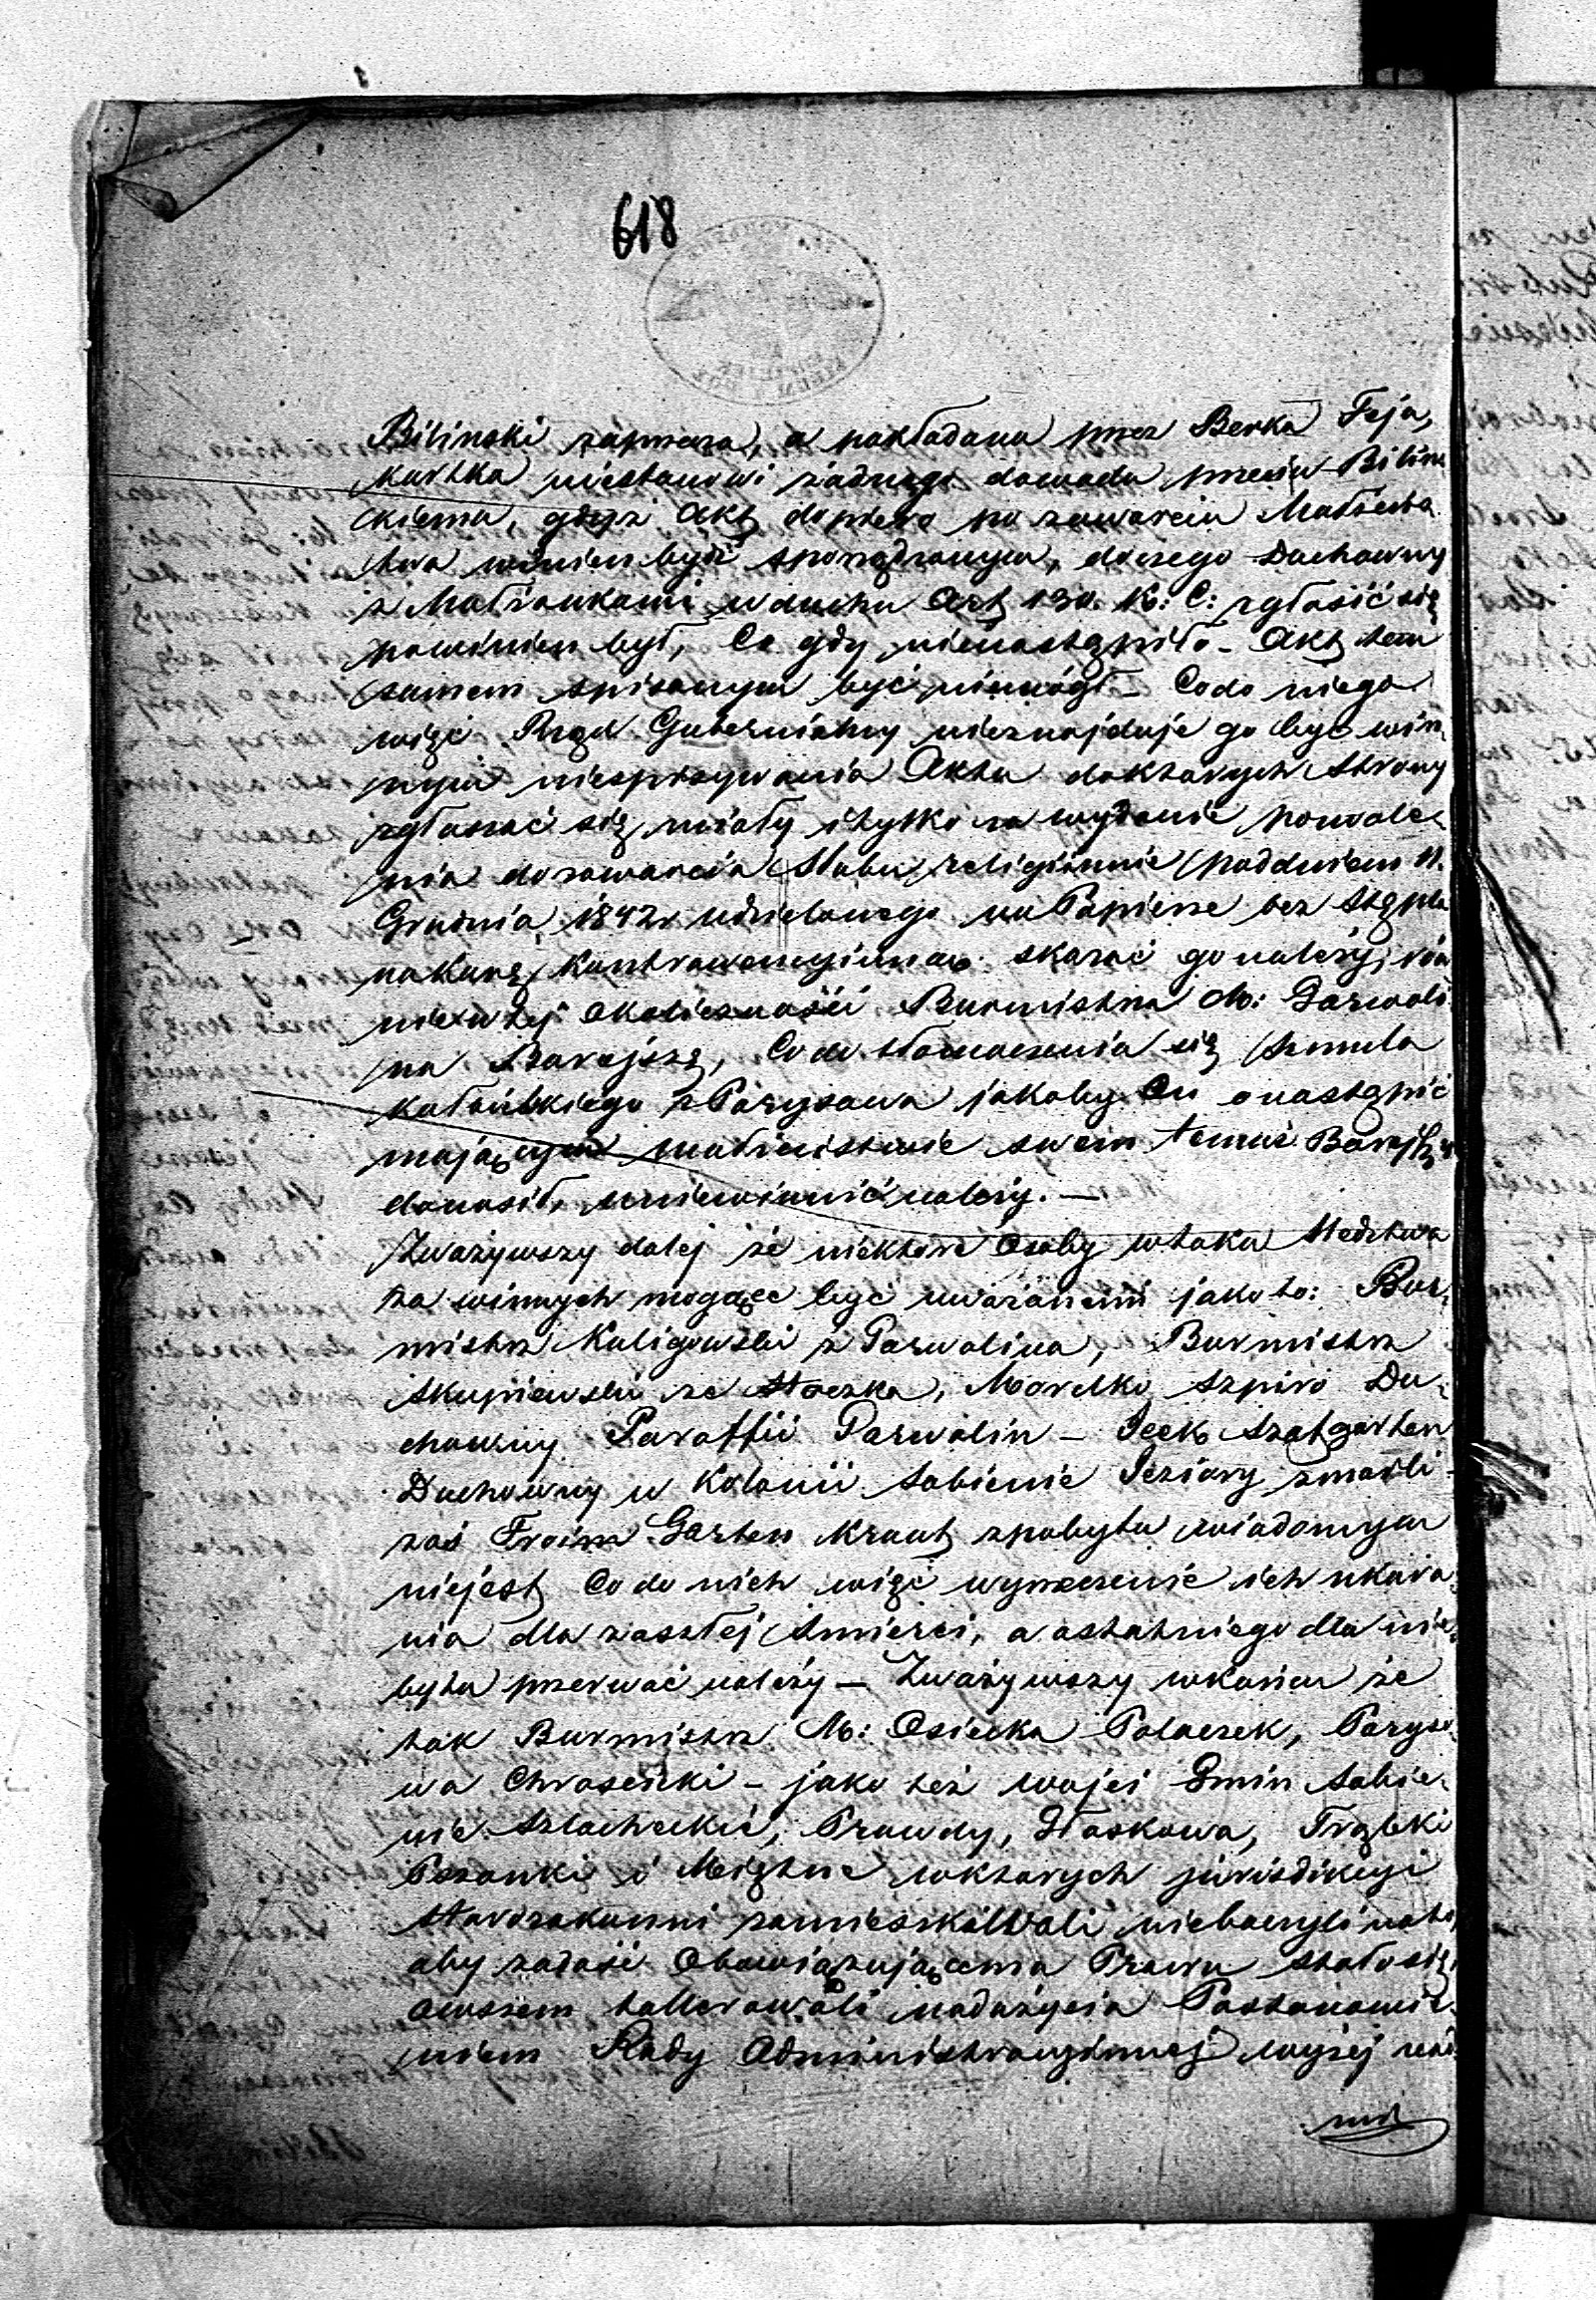 618
Bilinski zaprzecza, a pokładana przez Berka Feja,
kartka niestanowi żadnego dowodu przeciw Bilins
kiemu, gdyż Akt dopiero po zawarciu Małżeńs
twa winien być sporządzonym, do czego Duchowny
z Małżonkami w duchu Art 130. K: C: zgłosić się
powinien był, Co gdy nienastąpiło - Akt tem
samem spisanym być niemógł - Co do niego
więc Rząd Gubernialny nieznajduje go być win,
nym niespisywania Aktu do których Strony
zgłaszać się miały i tylko za wydanie pozwole,
nia do zawarcia Slubu religijnie pod dniem 11.
Grudnia 1842r udzielonego na Papierze bez Stępla
na karę kontrawencyjną skazać go należy, rów
nie w tej okoliczności Burmistrza M: Garwoli
na Barejszę, Co do tłomaczenia się Szmula
Kotońskiego z Parysowa jakoby On o nastąpić
mającym małżeństwie swem temuż Barejszy
donosił, uniewinnić należy. —
Zważywszy dalej że niektóre Osoby w toku Sledztwa
za winnych mogące być uważanemi jako to: Bur,
mistrz Kuligowski z Garwolina, Burmistrz
Skupiewski ze Stoczka, Mordko Szpiro Du,
chowny Paraffii Garwolin - Icek Szatgarten
Duchowny w Kolonii Sobienie Jeziory zmarli -
zaś Froim Garten Kraut z pobytu wiadomym
niejest Co do nich więc wyrzeczenie ich ukara
nia dla zaszłej Smierci, a ostatniego dla nie,
bytu przerwać należy — Zważywszy w końcu że
tak Burmistrz M: Osiecka Polaczek, Paryso
wa Chrosenki - jako też wójci Gmin Sobie,
nie Szlacheckie, Prawdy, Głoskowa, Trąbki
Pszonki i Miętne w których jurisdikcyi
starozakonni zamieszkiwali niebaczyli na to,
aby zadość Obowiązującemu Prawu stało się
owszem tollerowali nadużycia Postanowie,
niem Rady Administracyjnej wyżej